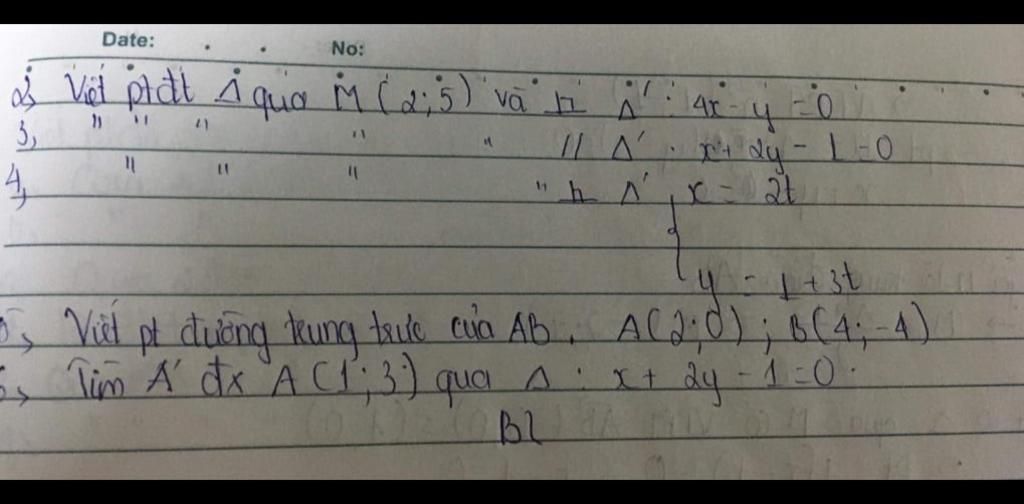 Date: No:
2, Viết ptđt Δ qua M (2;5) và ⊥ Δ': 4x - y = 0
3, " " " " " // Δ': x + 2y - 1 = 0
4, " " " " ⊥ Δ' { x = 2t
y = 1 + 3t
5, Viết pt đường trung trực của AB. A(2;0); B(4;-4)
6, Tìm A' đx A (1;3) qua Δ: x + 2y - 1 = 0.
Bl